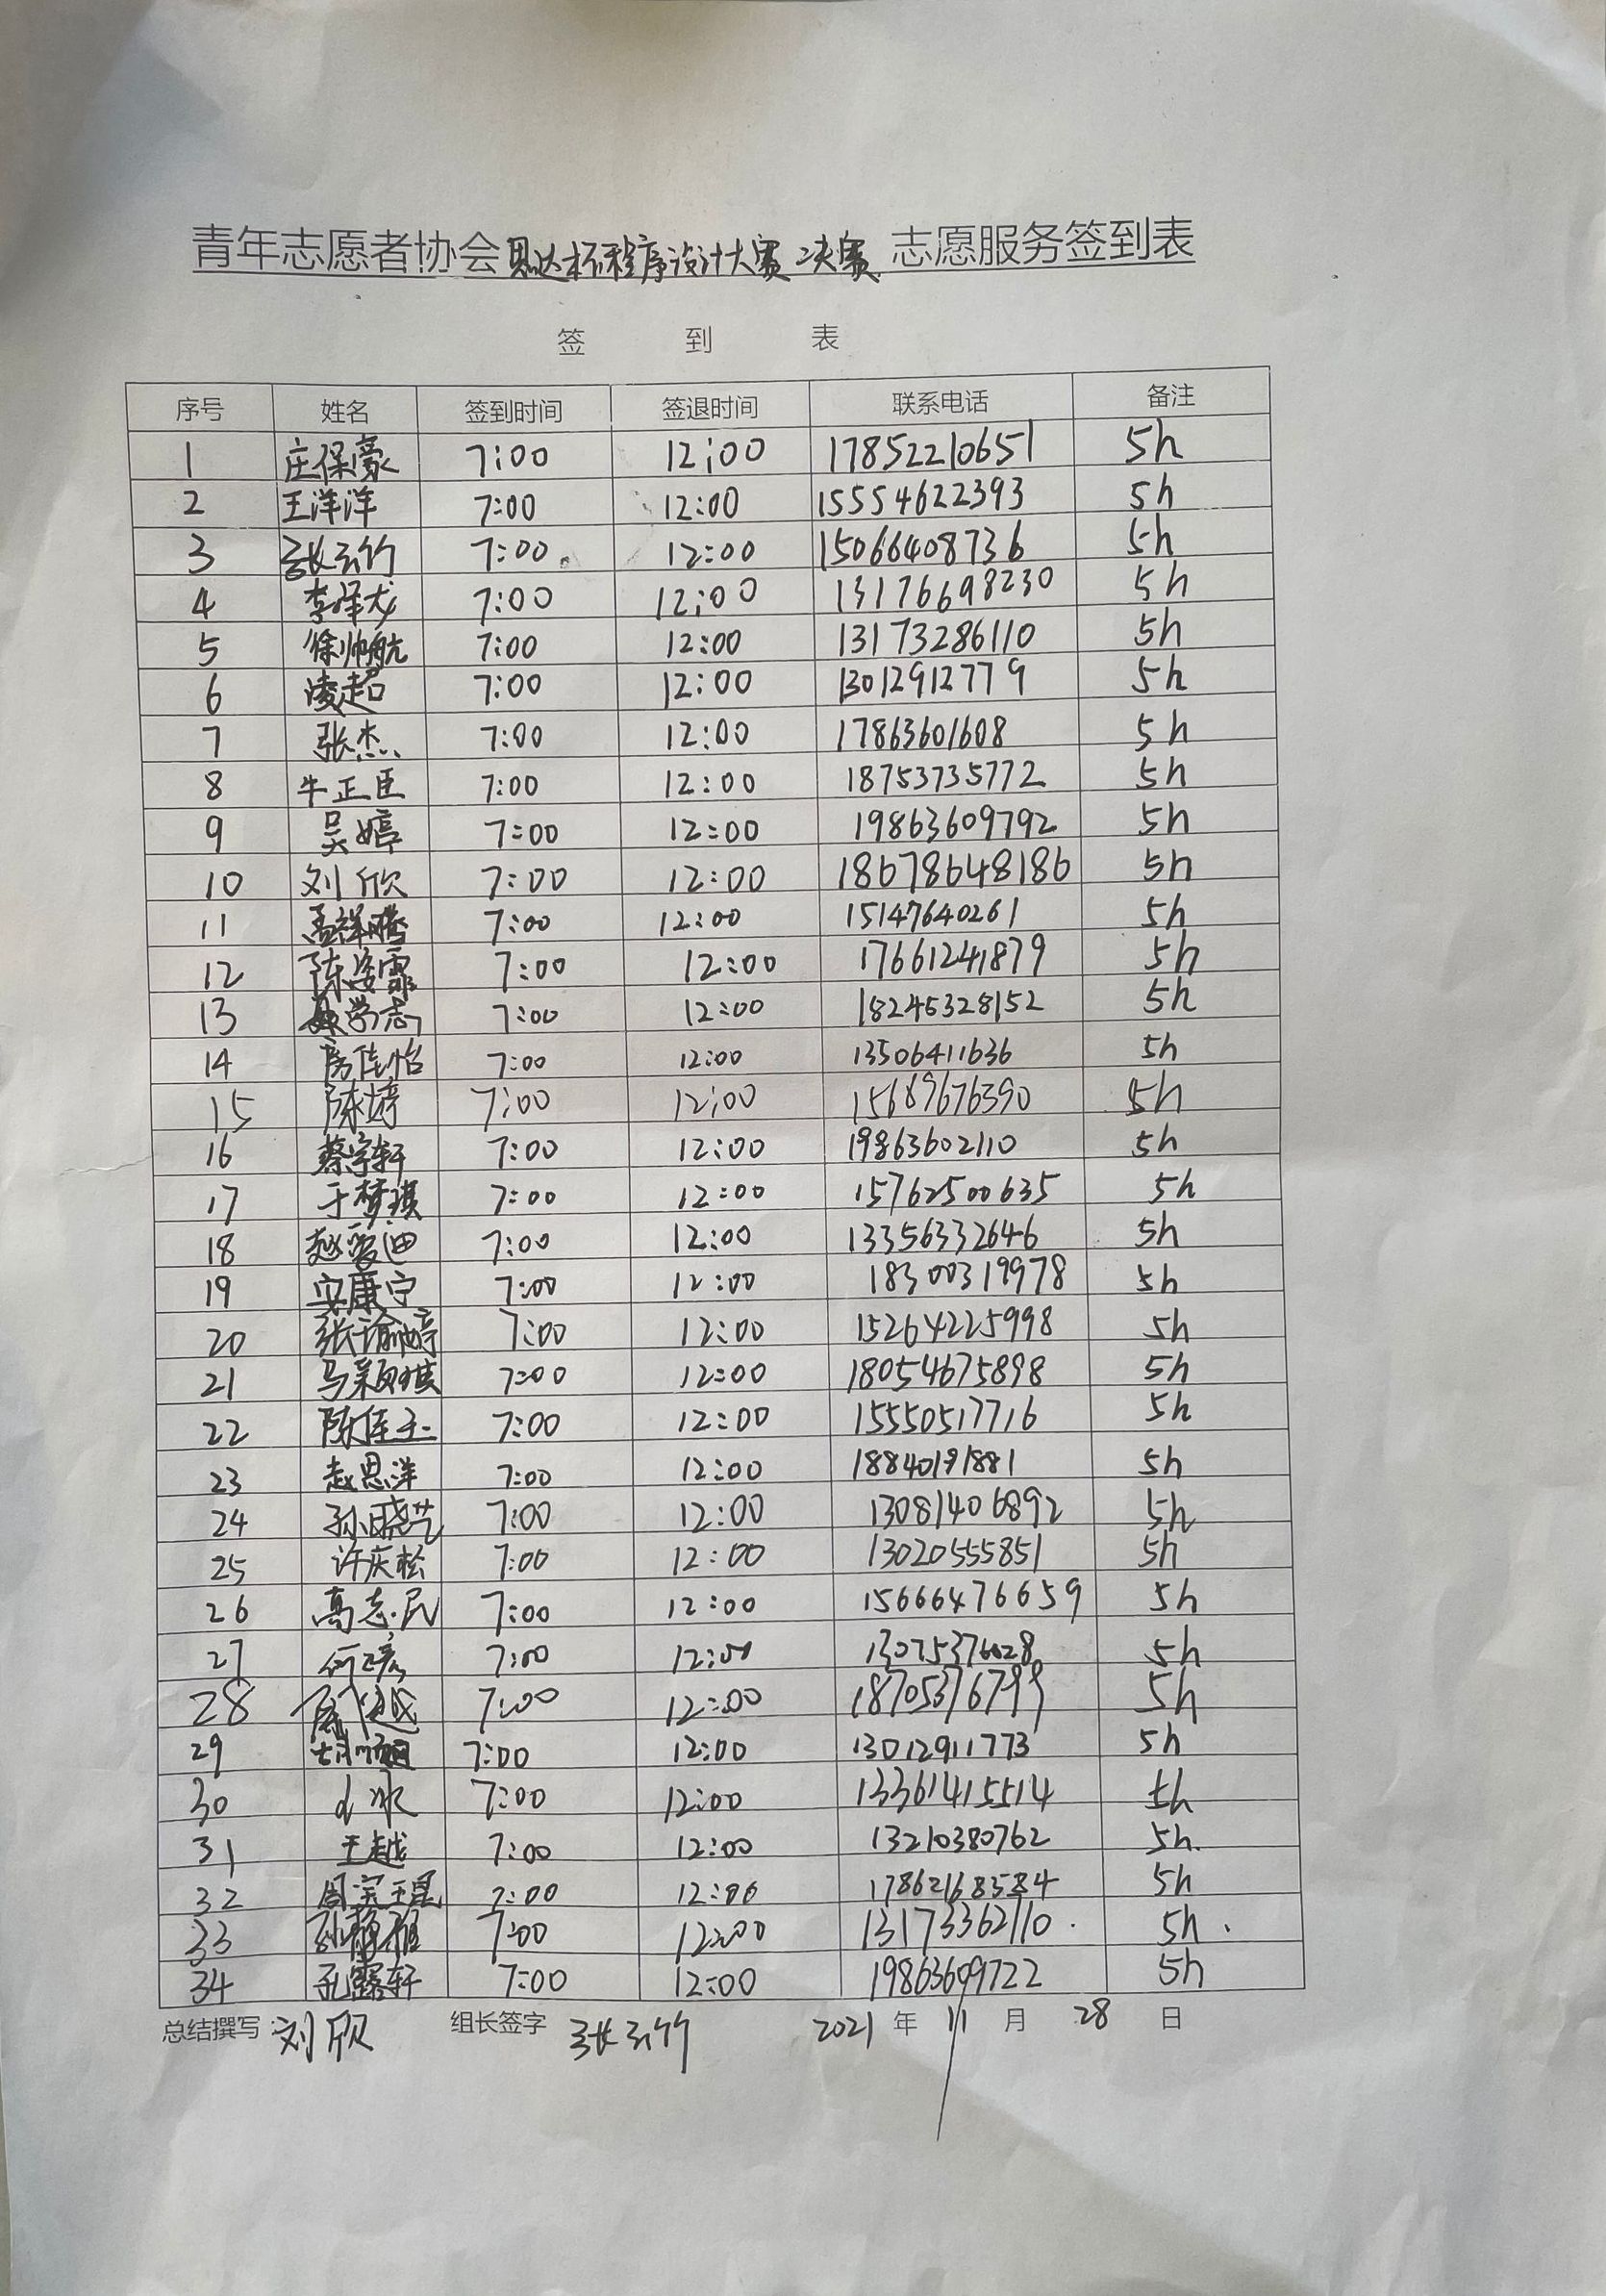 青年志愿者协会思达杯程序设计大赛决赛志愿服务签到表
签到表
序号 姓名 签到时间 签退时间 联系电话 备注
1 庄保豪 7:00 12:00 17852210651 5h
2 王洋洋 7:00 12:00 15554622393 5h
3 张云竹 7:00 12:00 15066408736 5h
4 李泽龙 7:00 12:00 13176698230 5h
5 徐帅航 7:00 12:00 13173286110 5h
6 凌超 7:00 12:00 13012912779 5h
7 张杰 7:00 12:00 17863601608 5h
8 牛正臣 7:00 12:00 18753735772 5h
9 吴婷 7:00 12:00 19863609792 5h
10 刘欣 7:00 12:00 18678648186 5h
11 孟祥腾 7:00 12:00 15147640261 5h
12 陈姿霏 7:00 12:00 17661241879 5h
13 学志 7:00 12:00 18246328152 5h
14 房佳怡 7:00 12:00 13506411636 5h
15 陈婷 7:00 12:00 15689676390 5h
16 蔡宇轩 7:00 12:00 19863602110 5h
17 于梦琪 7:00 12:00 15762500635 5h
18 赵雯迪 7:00 12:00 13356332646 5h
19 安康宁 7:00 12:00 18300319978 5h
20 张瑜婷 7:00 12:00 15264225998 5h
21 马颖琪 7:00 12:00 18054675898 5h
22 陈佳玉 7:00 12:00 15550517716 5h
23 赵思洋 7:00 12:00 18840191881 5h
24 孙晓艺 7:00 12:00 13081406892 5h
25 许庆松 7:00 12:00 13020555851 5h
26 高志民 7:00 12:00 15666476659 5h
27 何 7:00 12:00 13075376028 5h
28 越 7:00 12:00 18705376799 5h
29 7:00 12:00 13012911773 5h
30 冰 7:00 12:00 13361415514 5h
31 王越 7:00 12:00 13210380762 5h
32 周宝玉星 7:00 12:00 17862168584 5h
33 孙静雅 7:00 12:00 13173362110 5h
34 孔露轩 7:00 12:00 19863609722 5h
总结撰写:刘欣 组长签字 张云竹 2021年11月28日